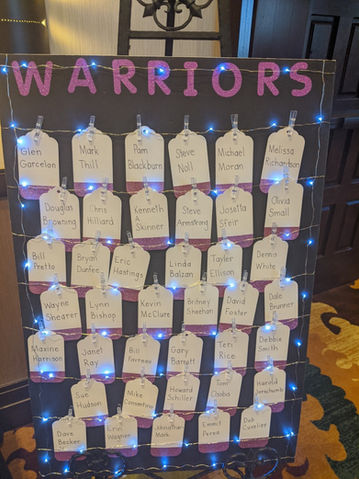 WARRIORS
Glen Garcelon
Mark Thill
Pam Blackburn
Steve Noll
Michael Moran
Melissa Richardson
Douglas Browning
Chris Hilliard
Kenneth A Skinner
Steve Armstrong
Josetta Sfeir
Olivia Small
Bill Pretto
Bryan Dunfee
Eric Hastings
Linda Balzan
Taylor Ellison
Dennis White
Wayne Shearer
Lynn Bishop
Kevin McClure
Britney Sheehan
David Foster
Dale Brunner
Maxine Harrison
Janel Ray
Bill
Gary Barnett
Teri Rice
Debbie Smith
Sue Hudson
Mike
Howard Schiller
Tom Choba
Harold
Dave Becker
Erin Wagner
Johnathan Mark
Emmit Perea
Deb Cuvelier